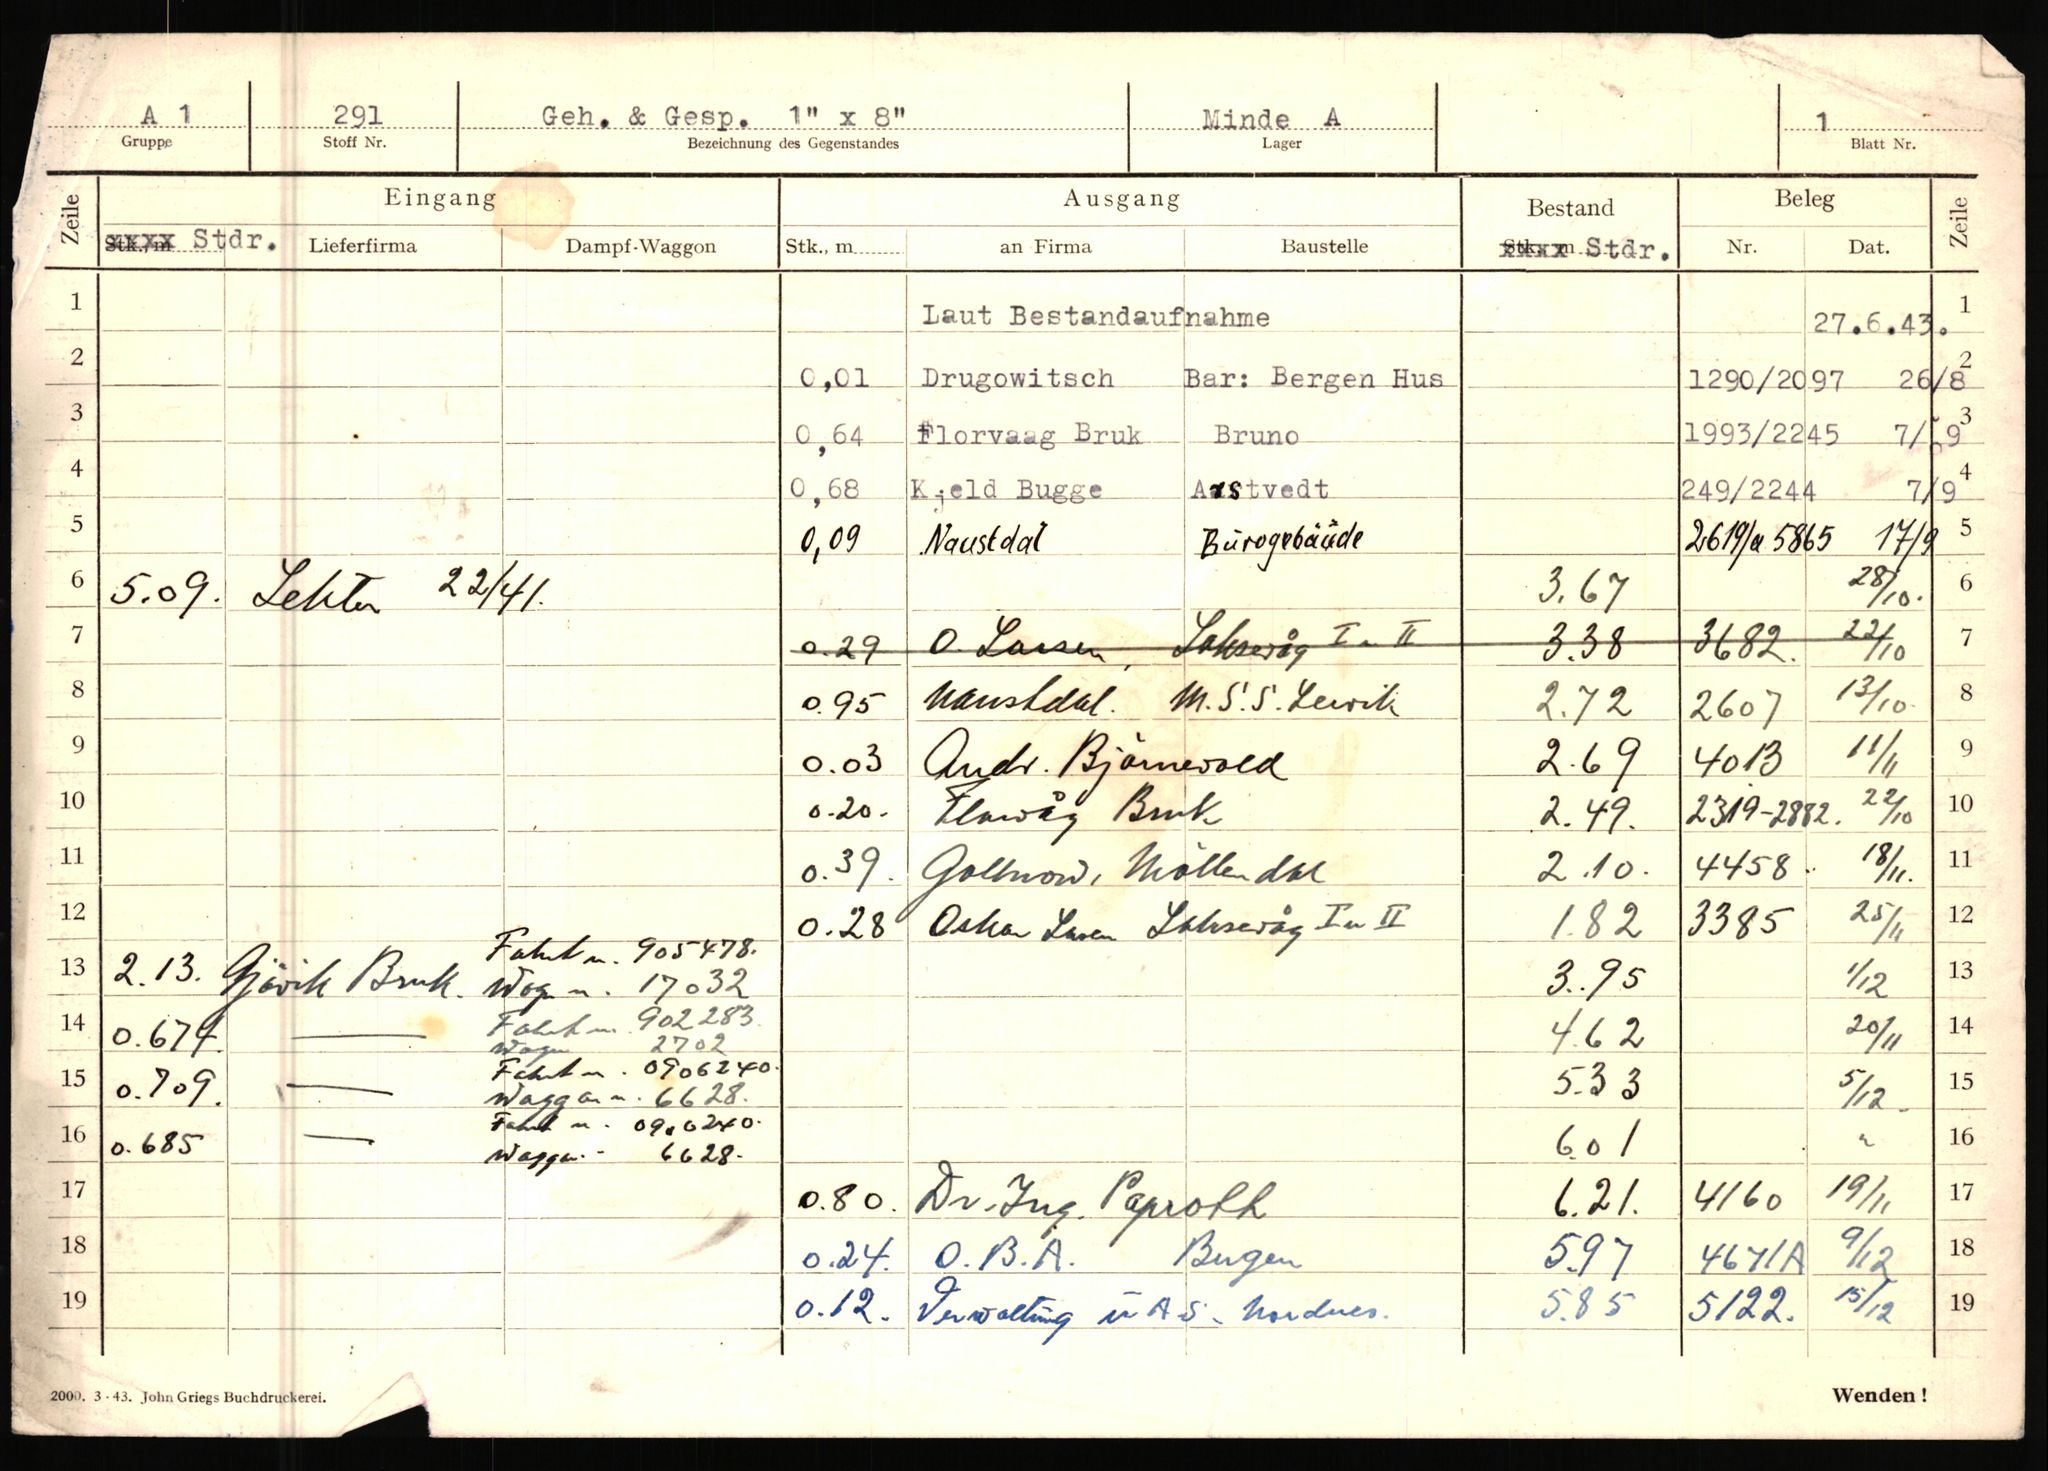 A 1 291 Geh. & Gesp. 1" x 8" Minde A 1
Gruppe Stoff Nr. Bezeichnung des Gegenstandes Lager Blatt Nr.
Zeile Eingang Ausgang Bestand Beleg Zeile
Stk., m Stdr. Lieferfirma Dampf-Waggon Stk., m an Firma Baustelle Stk., m Stdr. Nr. Dat.
1 Laut Bestandaufnahme 27.6.43. 1
2 0,01 Drugowitsch Bar: Bergen Hus 1290/2097 26/8 2
3 0,64 Florvaag Bruk Bruno 1993/2245 7/9 3
4 0,68 Kjeld Bugge Aastvedt 249/2244 7/9 4
5 0,09 Naustdal Bürogebäude 2619/a 5865 17/9 5
6 5.09. Lekter 22/41. 3.67 28/10. 6
7 0.29 O. Larsen, Laksevåg I u II 3.38 3682. 22/10 7
8 0.95 Naustdal. M.S.S. Lervik 2.72 2607 13/10. 8
9 0.03 Andr. Björnevold 2.69 4013 11/11 9
10 0.20. Florvåg Bruk 2.49. 2319-2882. 22/10 10
11 0.39. Gollnow, Möllendal 2.10. 4458. 18/11. 11
12 0.28 Oskar Larsen Laksevåg I u II 1.82 3385 25/11 12
13 2.13. Gjövik Bruk. Fahrt n. 905478. 3.95 1/12 13
Wag. n. 17032
14 0.674. — Fahrt n. 902283. 4.62 20/11 14
Wagn 2702
15 0.709. — Fahrt n. 0906240. 5.33 5/12. 15
Waggon n. 6628.
16 0.685 — Fahrt n. 0900240. 6.01 " 16
Waggon 6628.
17 0.80. Dr. Ing. Paproth 6.21. 4160 19/11 17
18 0.24. O.B.A. Bergen 5.97 4671A 9/12 18
19 0.12. Verwaltung ü A S. Nordnes. 5.85 5122. 15/12 19
2000. 3 - 43. John Griegs Buchdruckerei. Wenden!